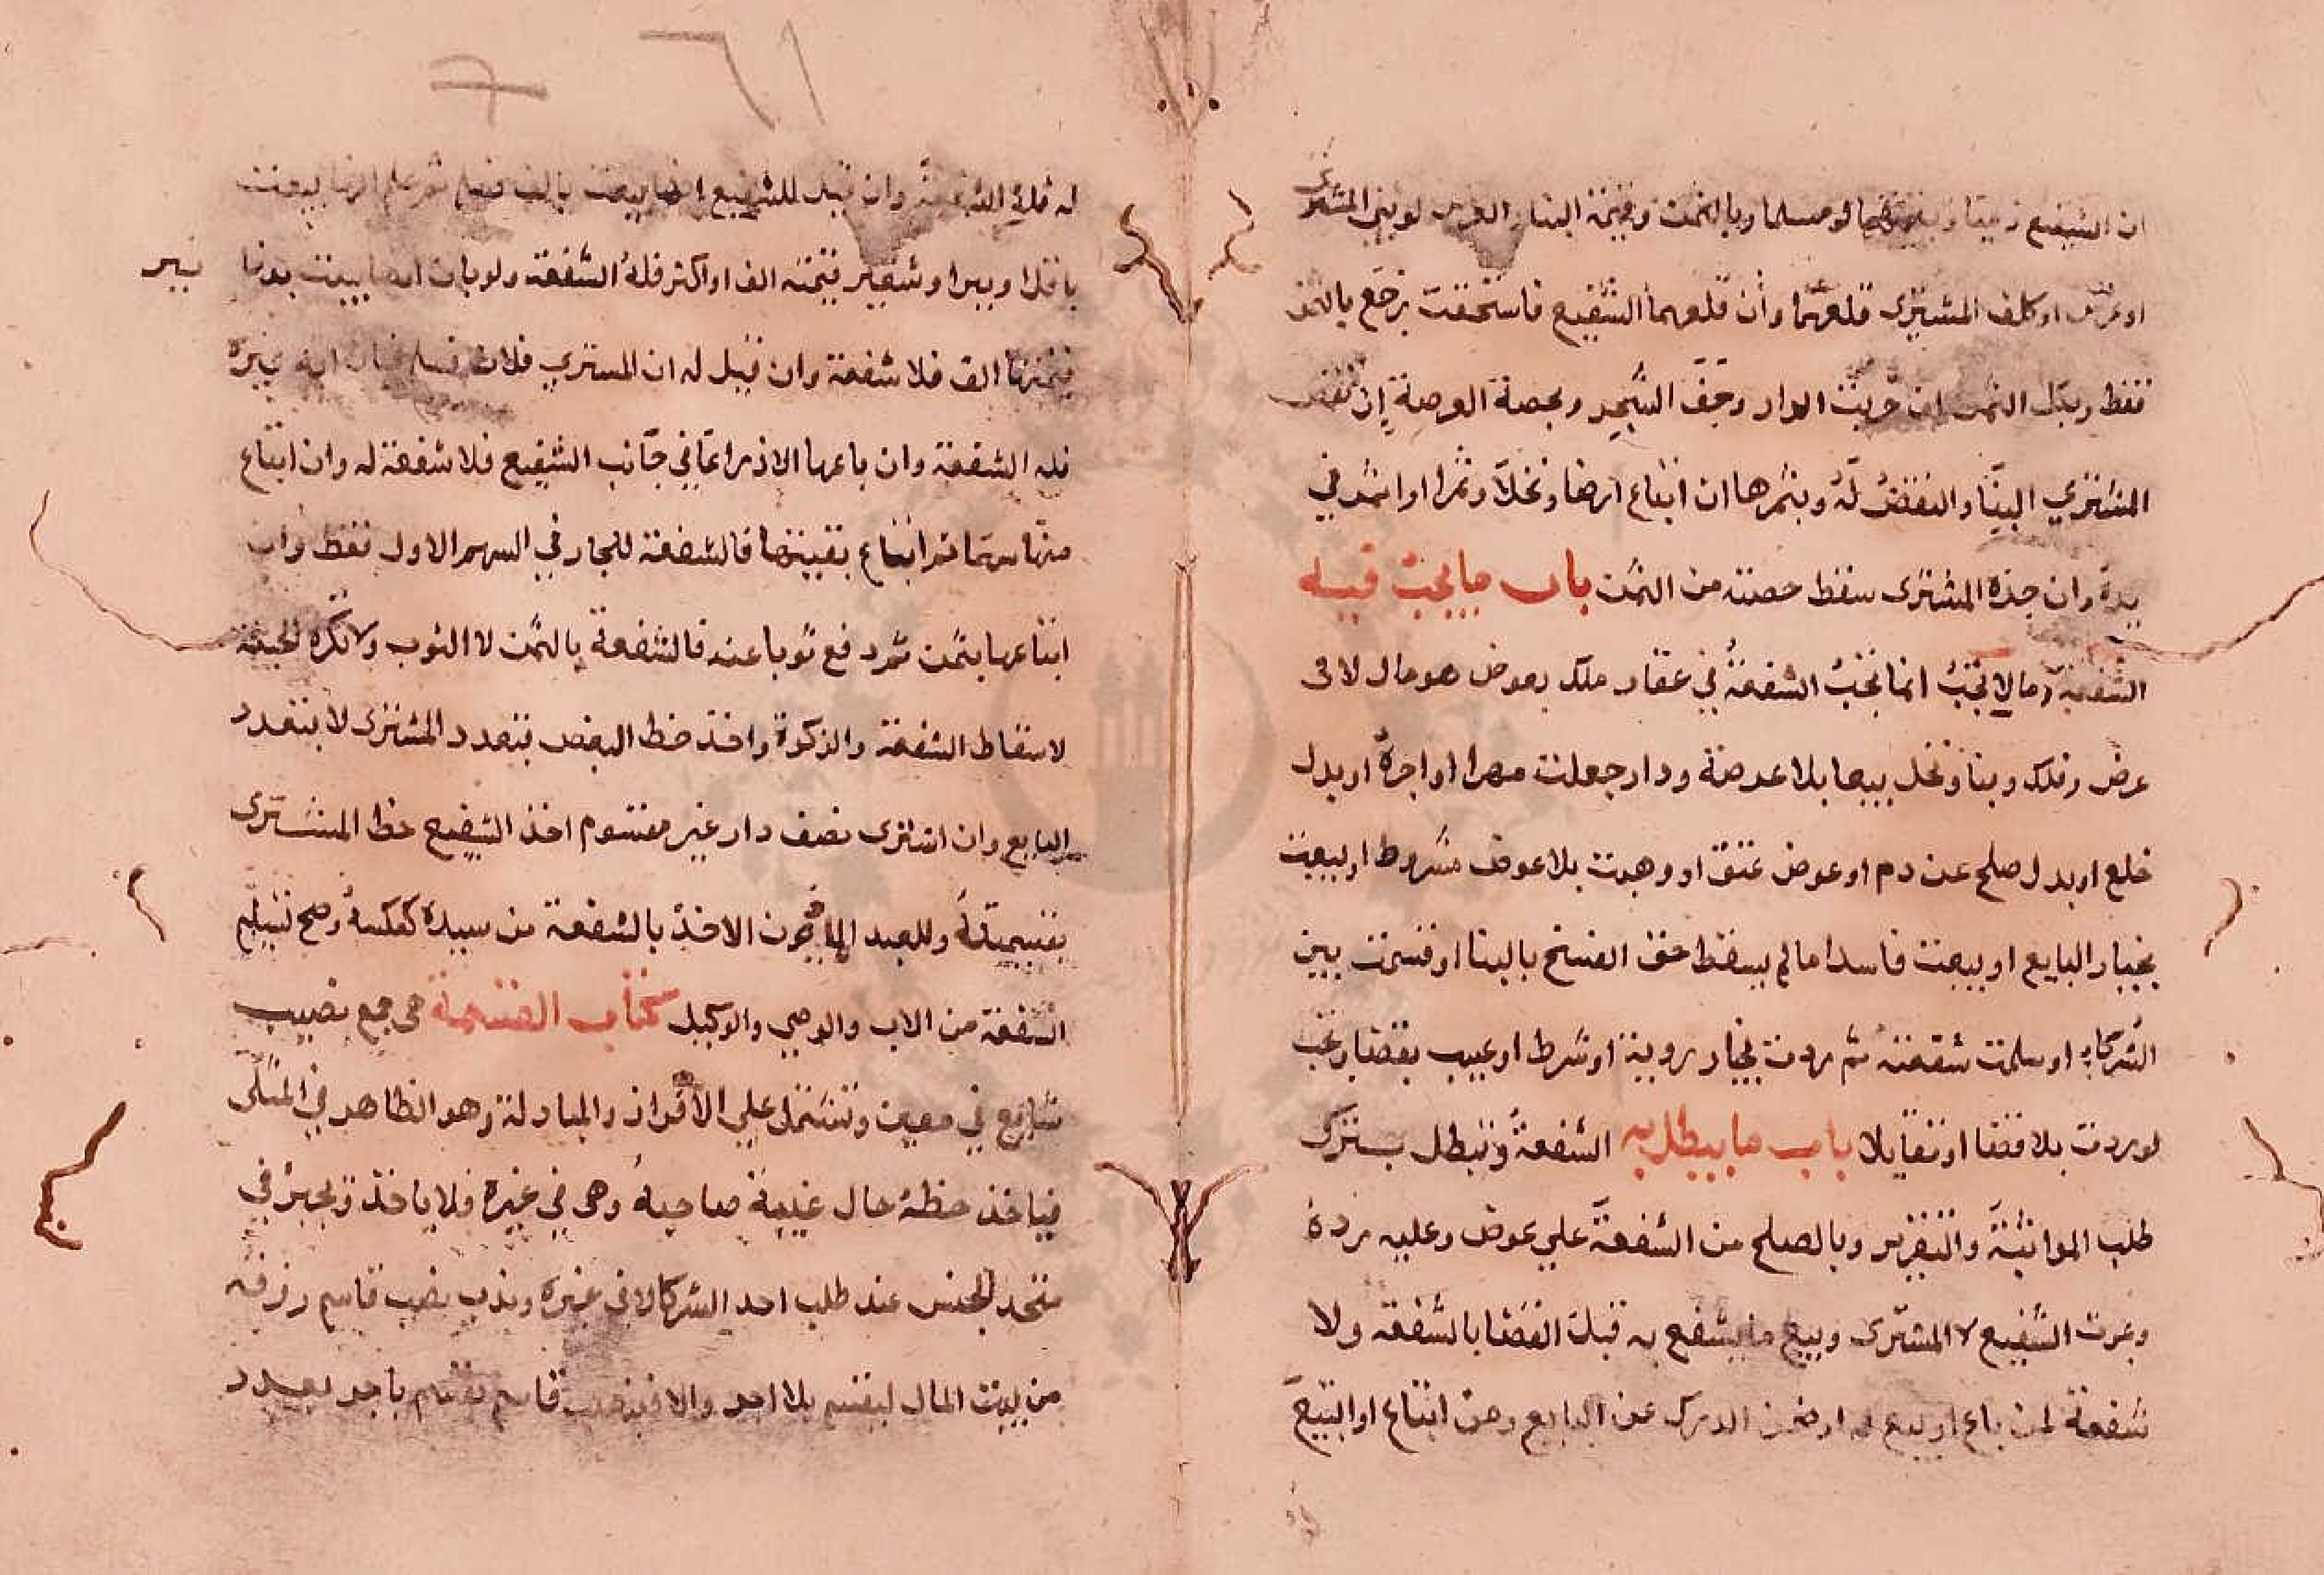 ان الشفيع ذميا وبقيمتهما لو مسلما وبالثمن وقيمة البنا والغرس لو بنى المشترى
او غرس او كلف المشترى قلعهما وان قلعهما الشفيع فاستحقت يرجع بالثمن
فقط وبكل الثمن ان خربت الدار وجف الشجر وبحصة العرصة إن نقض
المشتري البنا والنقض له وبثمرها ان ابتاع ارضا ونخلا وثمرا او اثمر في
يده وان جذه المشترى سقط حصته من الثمن باب ما يجب فيه
الشفعة وما لا تجب انما تجب الشفعة في عقار ملك بعوض هو مال لا فى
عرض وفلك وبنا ونخل بيعا بلا عرصة ودار جعلت مهرا او اجرة او بدل
خلع او بدل صلح عن دم او عوض عتق او وهبت بلا عوض مشروط او بيعت
بخيار البايع او بيعت فاسدا ما لم يسقط حق الفسخ بالبنا او قسمت بين
الشركاء او سلمت شفعته ثم ردت بخيار روية او شرط او عيب بقضا وتجب
لو ردت بلا قضا او تقايلا باب ما يبطل به الشفعة وتبطل بترك
طلب المواثبة والتقرير وبالصلح من الشفعة علي عوض وعليه رده
وبموت الشفيع لا المشترى وبيع ما يشفع به قبل القضا بالشفعة ولا
شفعة لمن باع او بيع له او ضمن الدرك عن البايع ومن ابتاع او ابتيع
له فله الشفعة وان قيل للشفيع انها بيعت بالف فسلم ثم علم انها بيعت
باقل او ببر او شعير قيمته الف او اكثر فله الشفعة ولو بان انها بيعت بدنانير
قيمتها الف فلا شفعة وان قيل له ان المشتري فلان فسلم فبان انه غيره
فله الشفعة وان باعها الا ذراعا في جانب الشفيع فلا شفعة له وان ابتاع
منها سهما ثم ابتاع بقيتها فالشفعة للجار في السهم الاول فقط وان
ابتاعها بثمن ثم دفع ثوبا عنه فالشفعة بالثمن لا الثوب ولا تكره الحيلة
لاسقاط الشفعة والزكوة واخذ حظ البعض بتعدد المشترى لا بتعدد
البايع وان اشترى نصف دار غير مقسوم اخذ الشفيع حظ المشترى
بقسمته وللعبد الماذون الاخذ بالشفعة من سيده كعكسه وصح تسليم
الشفعة من الاب والوصي والوكيل كتاب القسمة هى جمع نصيب
شايع في معين وتشتمل علي الافراز والمبادلة وهو الظاهر في المثلى
فياخذ حظه حال غيبة صاحبه وهى في غيره فلا ياخذ ويجبر في
متحد الجنس عند طلب احد الشركا لا في غيره وندب نصب قاسم رزقه
من بيت المال ليقسم بلا اجر والا فينصب قاسم يقسم باجر بعدد